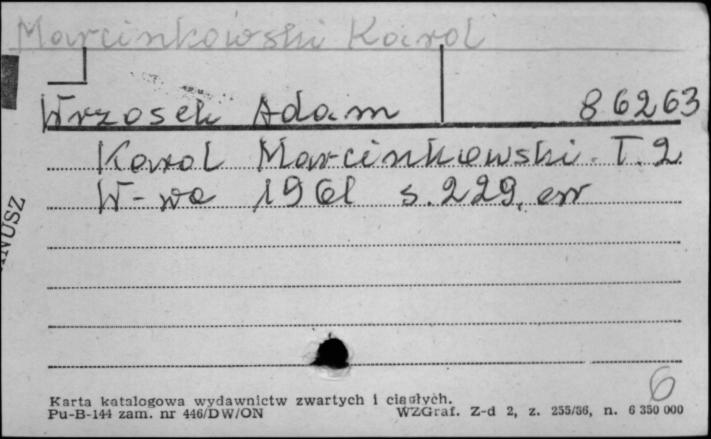 Marcinkowski Karol
Wrzosek Adam 86263
Karol Marcinkowski. T. 2
W-wa 1961 s. 229, err
NUSZ
6
Karta katalogowa wydawnictw zwartych i ciągłych.
Pu-B-144 zam. nr 446/DW/ON WZGraf. Z-d 2, z. 255/56, n. 6 350 000